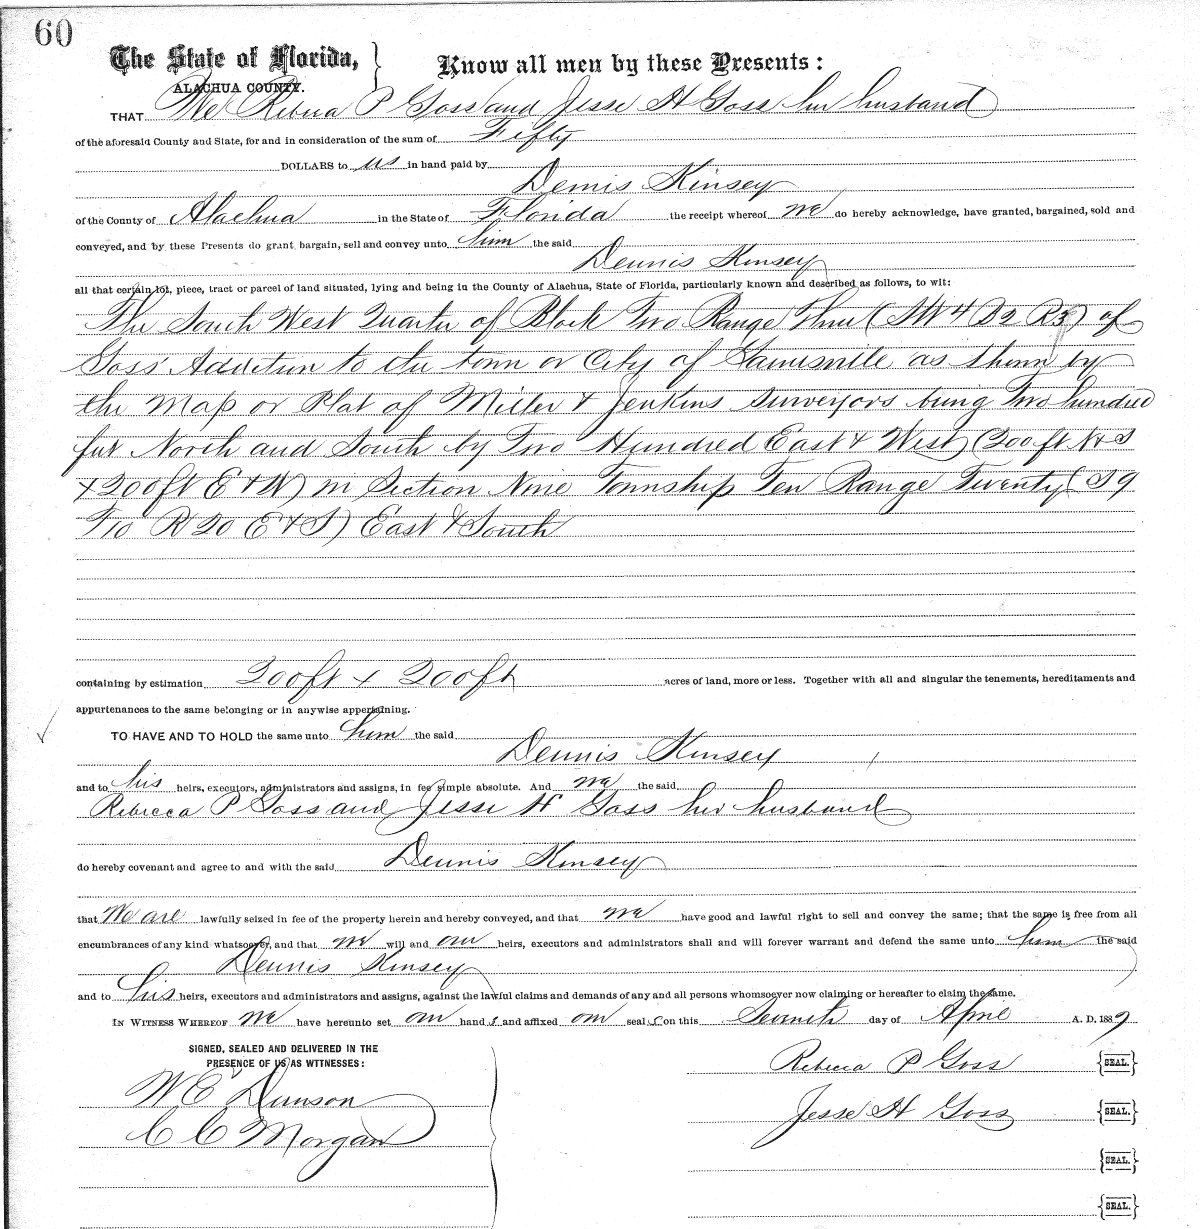 60
The State of Florida,
ALACHUA COUNTY.
Know all men by these Presents:
THAT We Rebecca P Goss and Jesse H Goss her husband
of the aforesaid County and State, for and in consideration of the sum of Fifty
DOLLARS to us in hand paid by
Dennis Kinsey
of the County of Alachua in the State of Florida the receipt whereof we do hereby acknowledge, have granted, bargained, sold and
conveyed, and by these Presents do grant, bargain, sell and convey unto him the said
Dennis Kinsey
all that certain lot, piece, tract or parcel of land situated, lying and being in the County of Alachua, State of Florida, particularly known and described as follows, to wit:
The South West Quarter of Block Two Range Three (SW 4 B2 R3) of
Goss' Addition to the town or City of Gainesville as shown by
the Map or Plat of Miller & Jenkins Surveyors being Two hundred
feet North and South by Two Hundred East & West (200ft N & S
& 200ft E & W) in Section Nine Township Ten Range Twenty (S9
T10 R20 E & S) East & South
containing by estimation 200ft x 200ft acres of land, more or less. Together with all and singular the tenements, hereditaments and
appurtenances to the same belonging or in anywise appertaining.
TO HAVE AND TO HOLD the same unto him the said
Dennis Kinsey
and to his heirs, executors, administrators and assigns, in fee simple absolute. And we the said
Rebecca P Goss and Jesse H Goss her husband
do hereby covenant and agree to and with the said Dennis Kinsey
that We are lawfully seized in fee of the property herein and hereby conveyed, and that we have good and lawful right to sell and convey the same; that the same is free from all
encumbrances of any kind whatsoever, and that we will and our heirs, executors and administrators shall and will forever warrant and defend the same unto him the said
Dennis Kinsey
and to his heirs, executors and administrators and assigns, against the lawful claims and demands of any and all persons whomsoever now claiming or hereafter to claim the same.
IN WITNESS WHEREOF we have hereunto set our hands and affixed our seals on this Seventh day of April A. D. 1889
SIGNED, SEALED AND DELIVERED IN THE
PRESENCE OF US AS WITNESSES:
Rebecca P Goss {SEAL.}
W E Dunson
Jesse H Goss {SEAL.}
C C Morgan
{SEAL.}
{SEAL.}